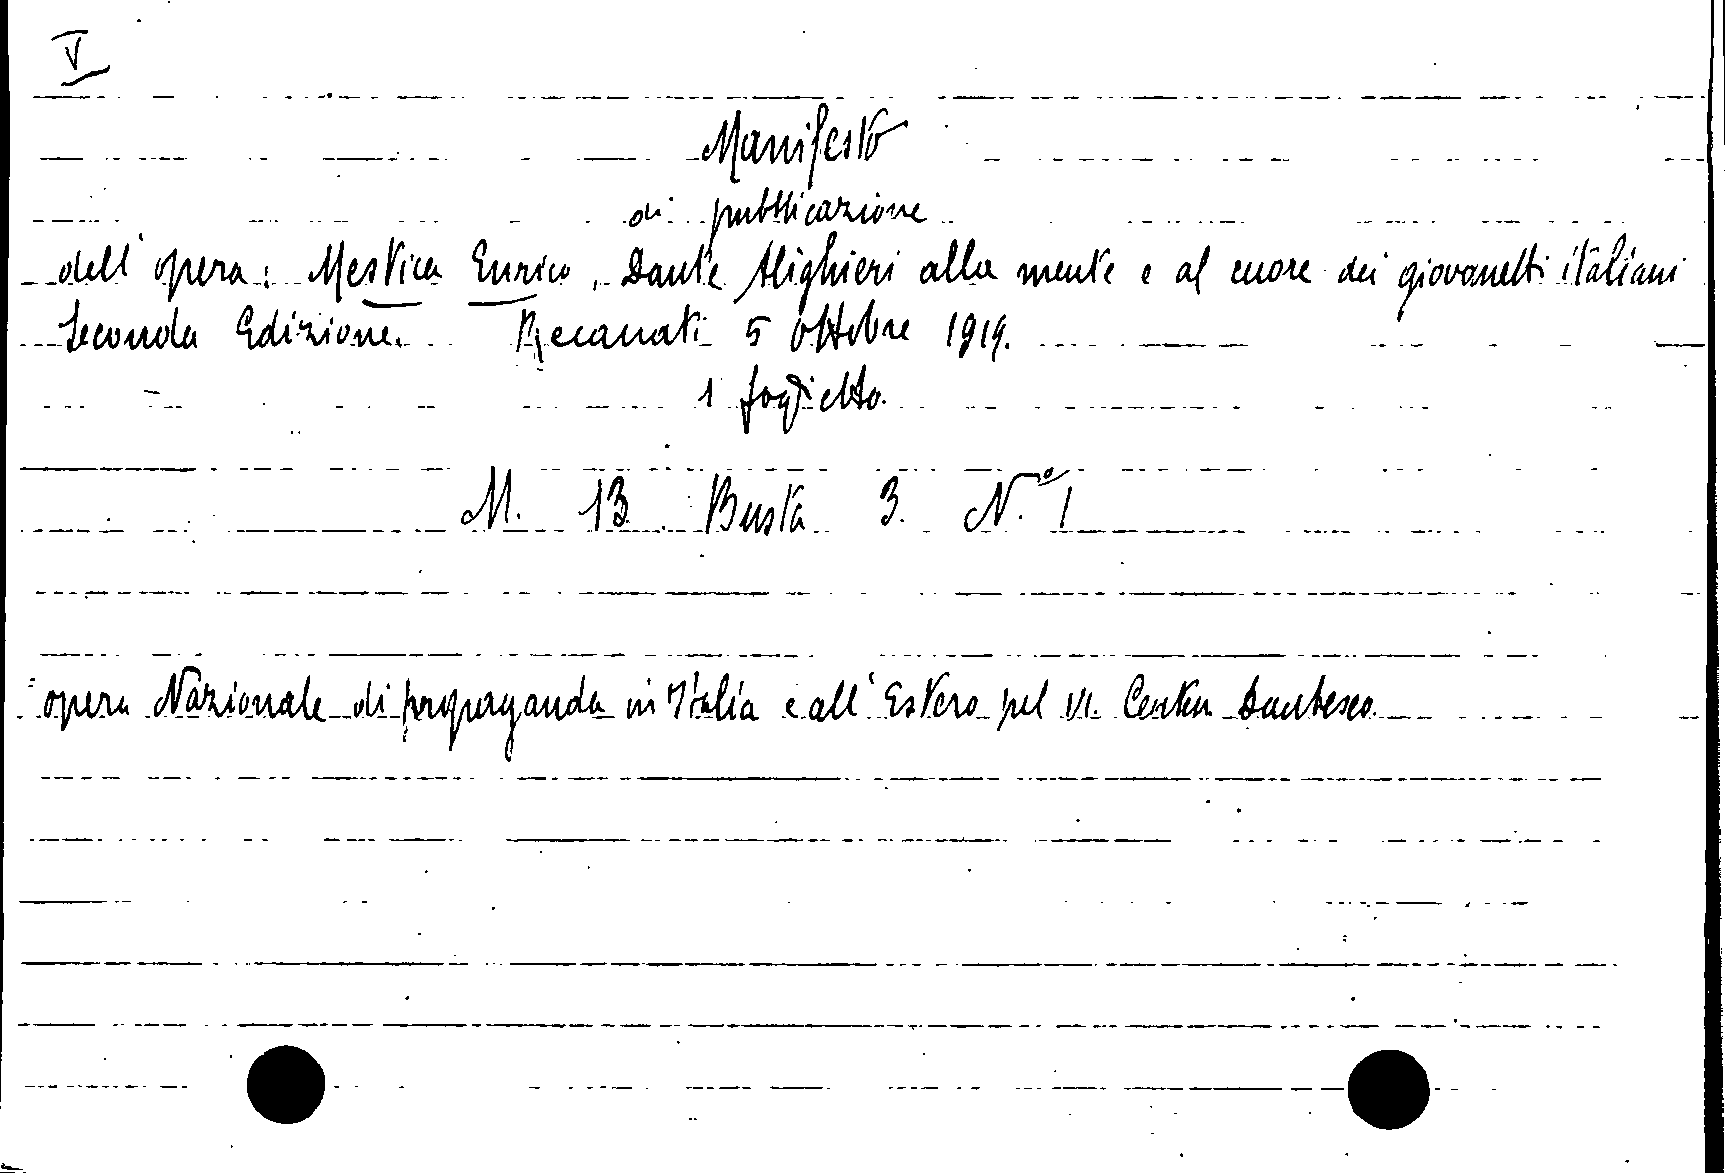 V
Manifesto
di pubblicazione
dell'opera: Mestica Enrico, Dante Alighieri alla mente e al cuore dei giovanetti italiani
Seconda Edizione. Recanati 5 ottobre 1919.
1 foglietto.
M. 13 Busta 3. N.° 1
opera Nazionale di propaganda in Italia e all'Estero pel VI. Dantesco.